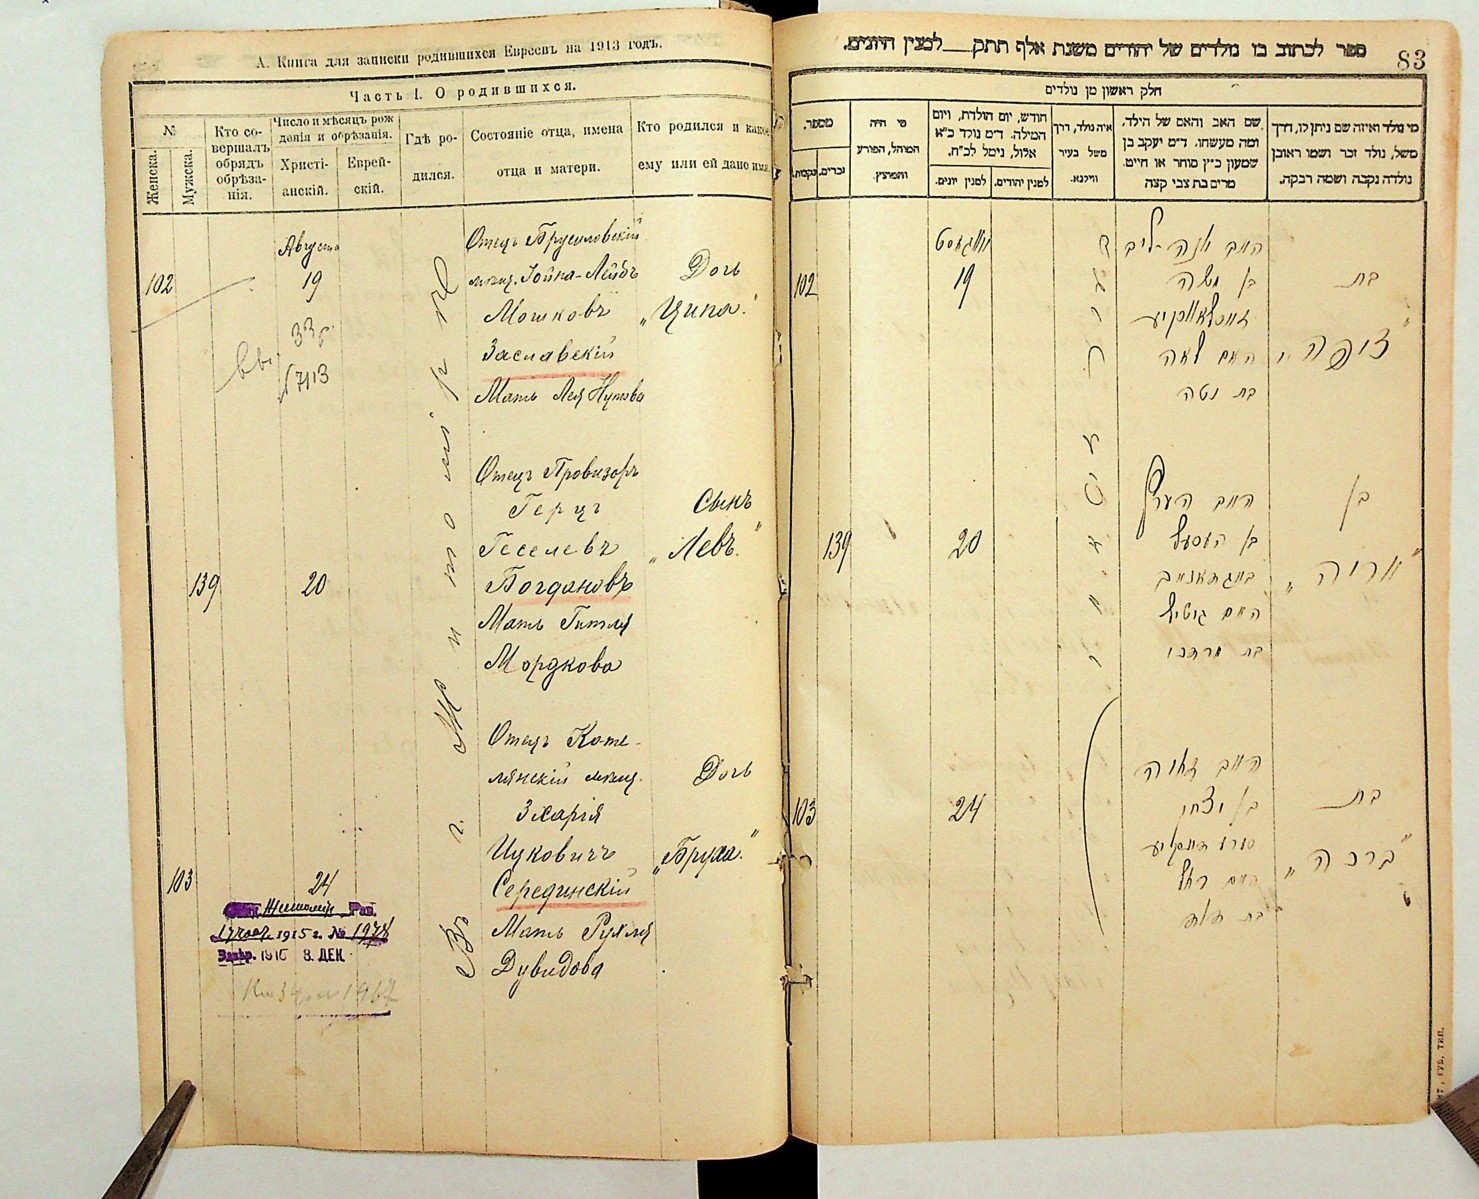 А. Книга для записки родившихся Евреевъ на 1913 годъ.
Часть I. О родившихся.
№
Женска.
Мужска.
Кто со-
вершалъ
обрядъ
обрѣза-
нія.
Число и мѣсяцъ рож
денія и обрѣзанія.
Христі-
анскій.
Еврей-
скій.
Гдѣ ро-
дился.
Состояніе отца, имена
отца и матери.
Кто родился и какое
ему или ей дано имя.
102
Августа
19
33 г.
Отецъ Брусиловскій
мѣщ. Іойна-Лейбъ
Мошковъ
Заславскій
Мать Лея Нутова
Дочь
„Ципа."
139
20
Отецъ Провизоръ
Герцъ
Геселевъ
Богдановъ
Мать Гитля
Мордкова
Сынъ
„Левъ."
103
24
Отецъ Коте-
лянскій мѣщ.
Зхарія
Ицковичъ
Серединскій
Мать Рухля
Дувидова
Дочь
„Бруха."
Въ г. Житомірѣ
Житомір. Рав.
1915 г. № 1978
1915 8. ДЕК.
83
ספר לכתוב בו נולדים של יהודים משנת אלף תתק__למנין היונים.
חלק ראשון מן נולדים
מספר.
נקבות.
זכרים.
מי היה
המוהל, הפורע
והמוצץ.
חודש, יום הולדת, ויום
המילה. ד״מ נולד כ״א
אלול, נימל לכ״ח.
למנין יונים.
למנין יהודים.
איה נולד, דרך
משל בעיר
ווילנא.
שם האב והאם של הילד,
ומה מעשהו. ד״מ יעקב בן
שמעון כ״ץ סוחר או חיים.
מרים בת צבי קצה
מי נולד ואיזה שם ניתן לו, דרך
משל, נולד זכר ושמו ראובן
נולדה נקבה ושמה רבקה.
102
אווגוסט
19
בן משה
זאסלאווסקיע
האם לאה
בת נטה
בת
„ציפה"
139
20
האב הערץ
בן העסעל
האם גיטל
בת מרדכי
בן
„אריה"
103
24
האב זכריה
בן יצחק
האם רחל
בת דוד
בת
„ברכה"